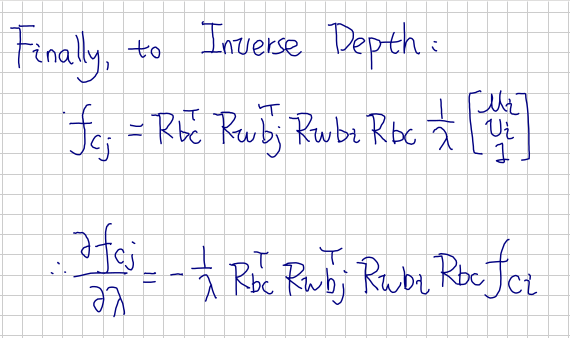 Finally, to Inverse Depth:
f_{cj} = R_{bc}^T R_{wbj}^T R_{wbi} R_{bc} \frac{1}{λ} \begin{bmatrix} u_i \\ v_i \\ 1 \end{bmatrix}
∴ \frac{∂f_{cj}}{∂λ} = -\frac{1}{λ} R_{bc}^T R_{wbj}^T R_{wbi} R_{bc} f_{ci}